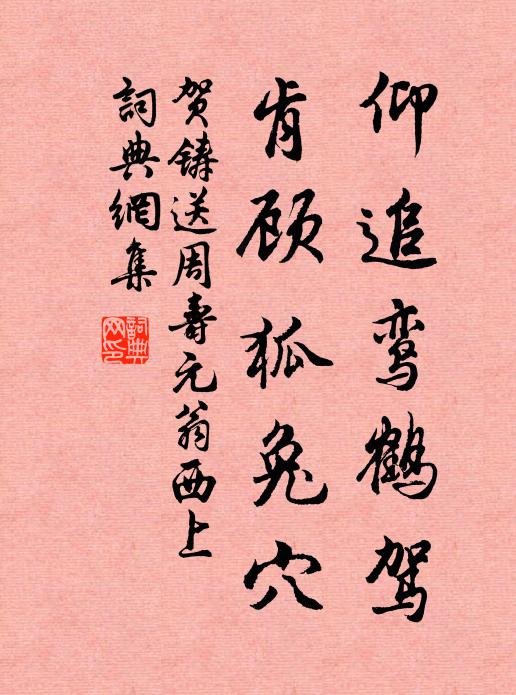 仰追鸾鹤驾
肯顾狐兔穴
贺铸送周寿元翁西上
詞典網集
詞典網印